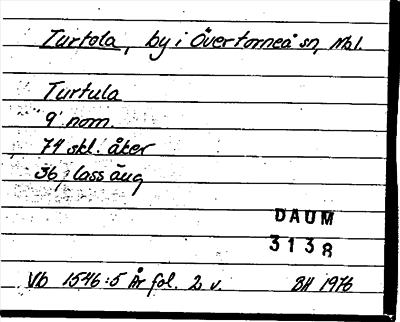 Turtola, by i Övertorneå sn, Nbl.
Turtula
9 nom.
74 skl. åker
36 lass äng
DAUM
3138
Vb 1546:5 År fol. 2 v. BH 1976